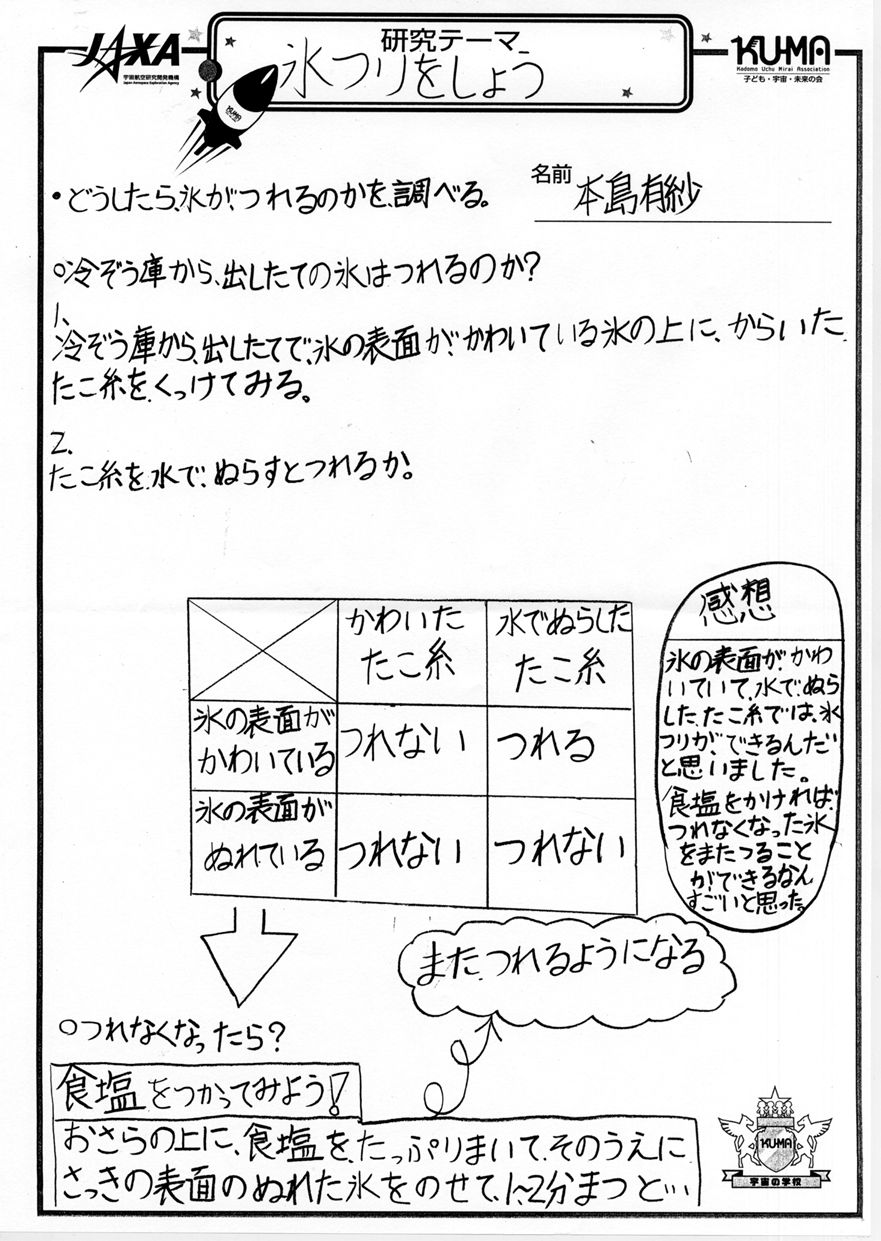 JAXA
宇宙航空研究開発機構
Japan Aerospace Exploration Agency
研究テーマ
氷つりをしょう
KUMA
KU-MA
Kodomo Uchu Mirai Association
子ども・宇宙・未来の会
名前 本島有紗
・どうしたら、氷が、つれるのかを、調べる。
○冷ぞう庫から、出したての氷はつれるのか?
1、
冷ぞう庫から、出したてで、氷の表面が、かわいている氷の上に、からいた
たこ糸を、くっけてみる。
2、
たこ糸を、水で、ぬらすとつれるか。
かわいた
たこ糸
水でぬらした
たこ糸
氷の表面が
かわいている
つれない
つれる
氷の表面が
ぬれている
つれない
つれない
感想
氷の表面が、かわ
いていて、水で、ぬら
した、たこ糸では、氷
つりが、できるんだ
と思いました。
食塩をかければ、
つれなくなった氷
をまたつること
ができるなん
すごいと思った。
また、つれるようになる
○つれなくなったら?
食塩をつかってみよう!
おさらの上に、食塩を、たっぷりまいて、そのうえに
さっきの表面のぬれた氷をのせて、1~2分まつと…
KUMA
宇宙の学校